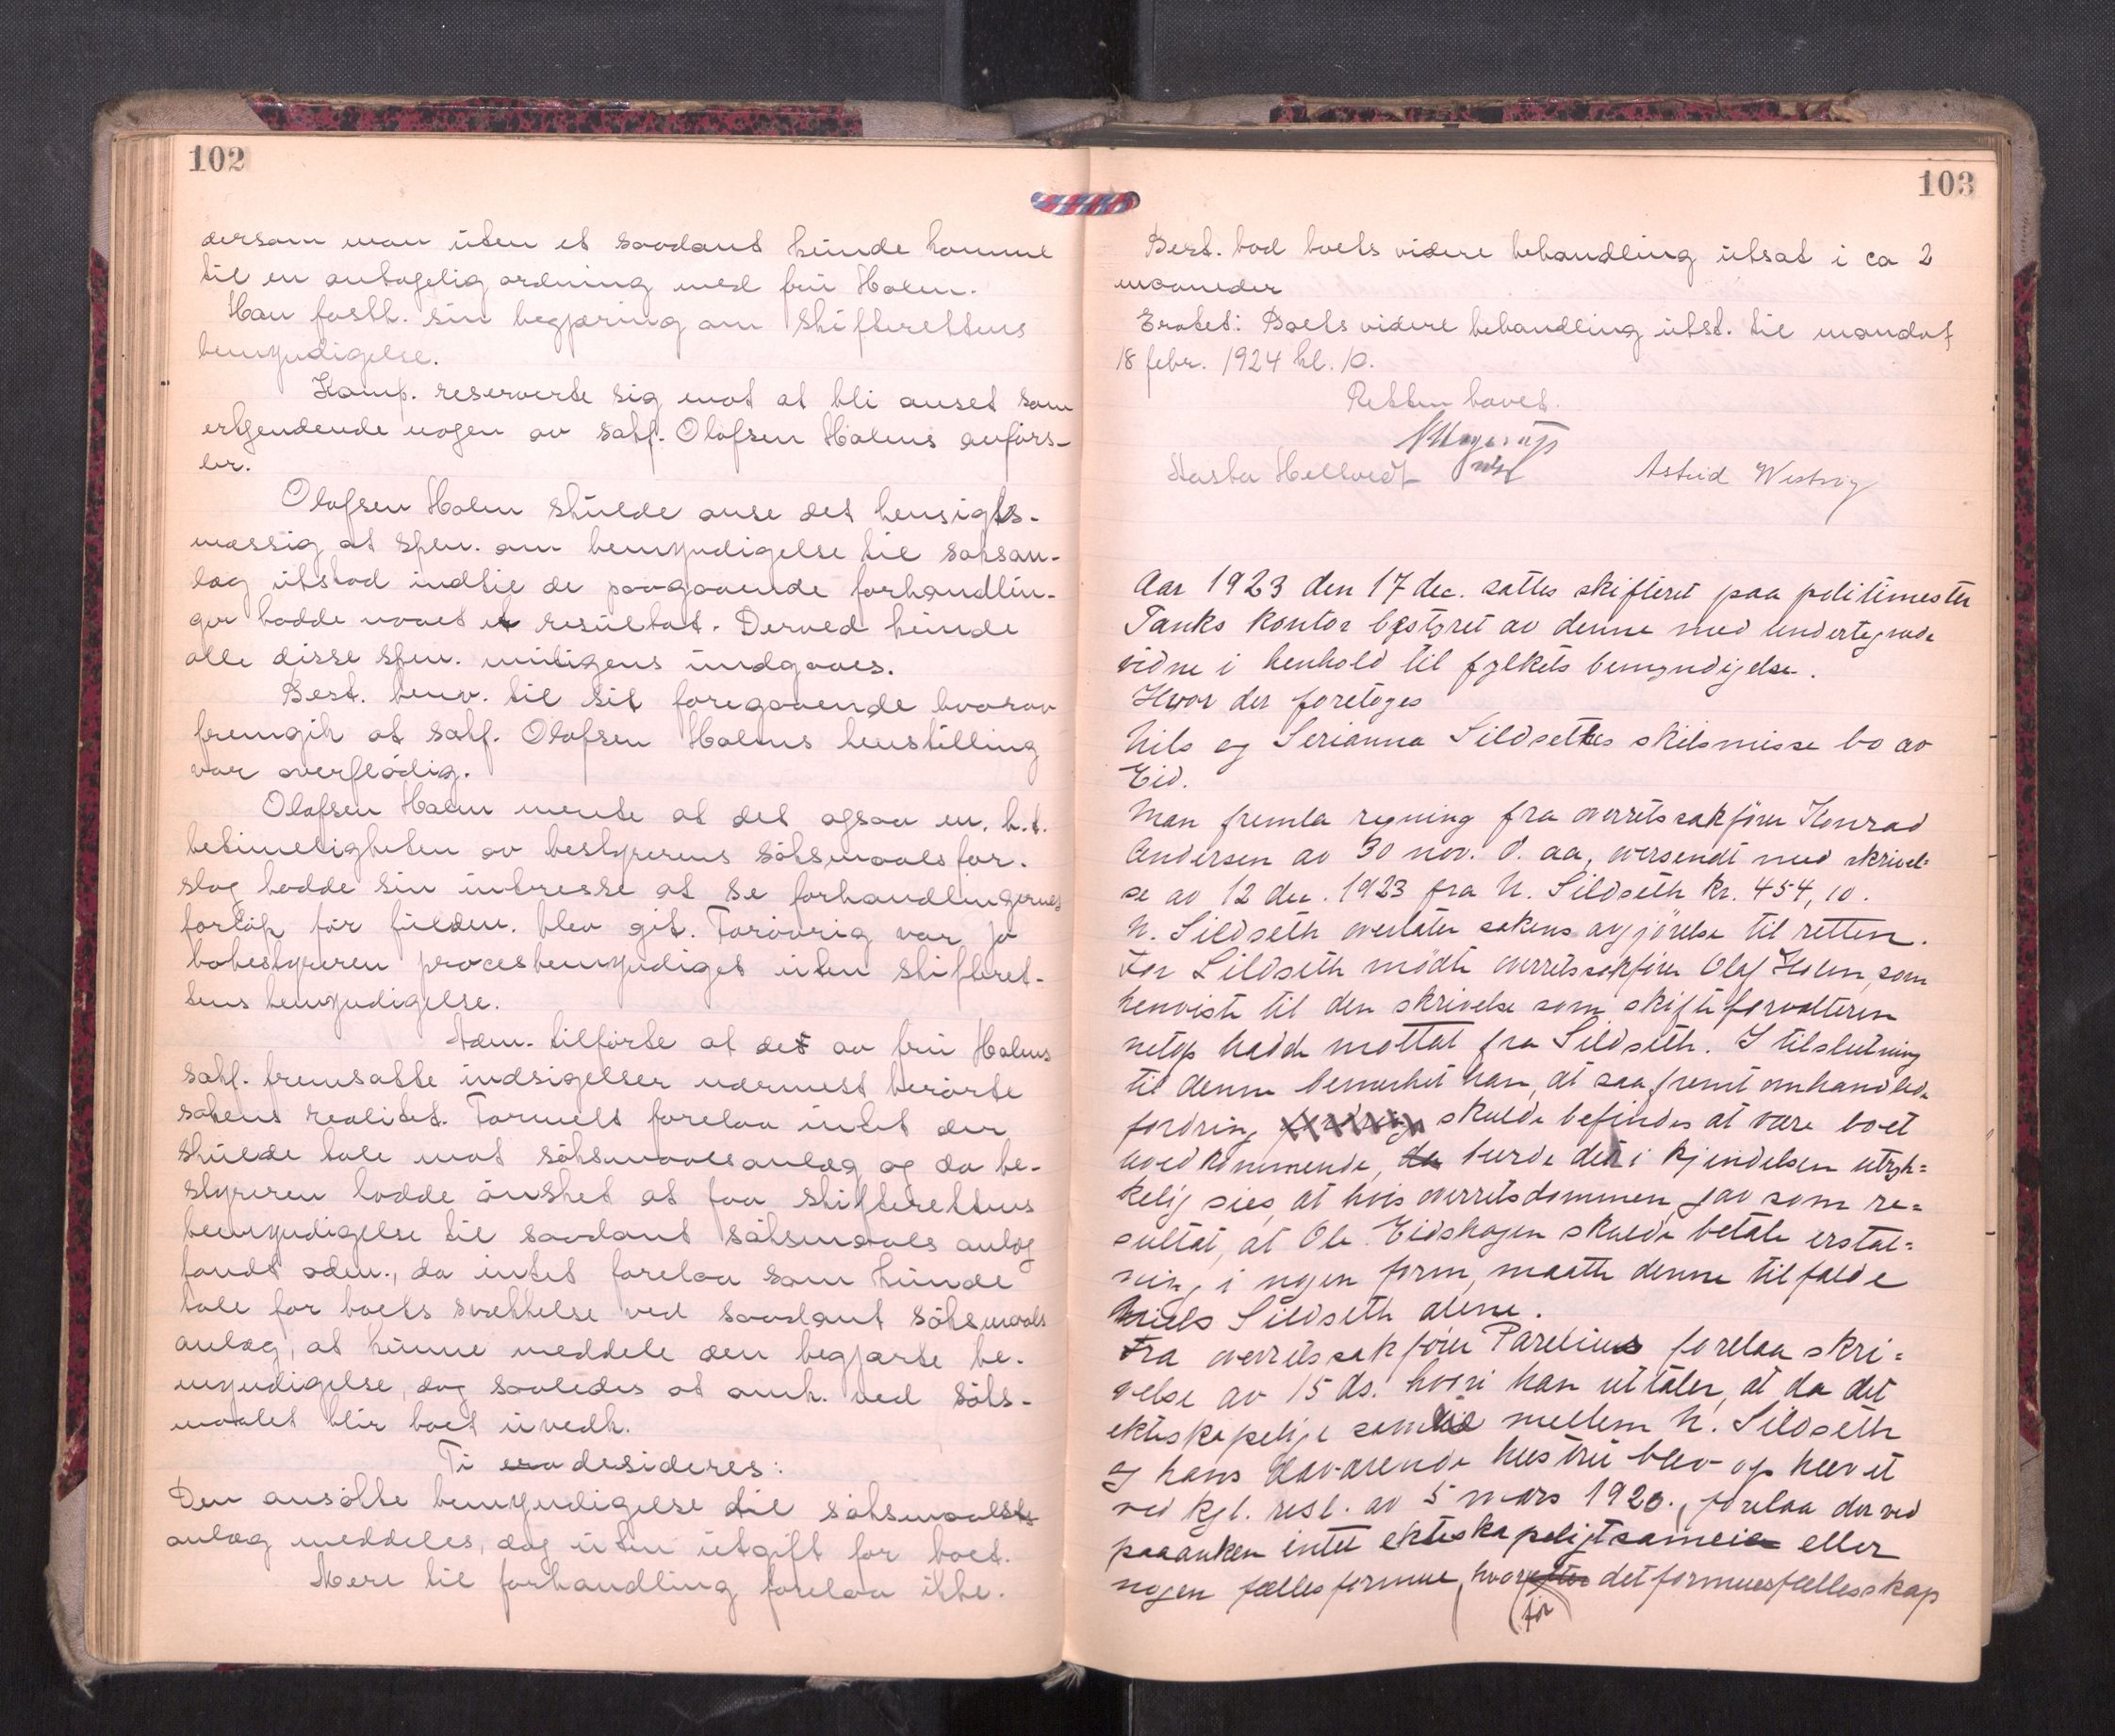 102
dersom man uten et saadant kunde komme
til en antagelig ordning med fru Holm.
Han fasth. sin begjæring om skifterettens
bemyndigelse.
Komp. reserverte sig mot at bli anset som
erkjendende nogen av sakf. Olafsen Holms anførs-
ler.
Olafsen Holm skulde anse det hensigts-
mæssig at spm. om bemyndigelse til saksan-
læg utstod indtil de paagaaende forhandlin-
ger hadde naaet et resultat. Derved kunde
alle disse spm. muligens undgaaes.
Best. henv. til sit foregaaende hvorav
fremgik at sakf. Olafsen Holms henstilling
var overflødig.
Olafsen Holm mente at det ogsaa m. h. t.
betimeligheten av bestyrerens søksmaalsfor-
slag hadde sin interesse at se forhandlingernes
forløp før fuldm. blev git. Forøvrig var jo
bobestyreren procesbemyndiget uten skifteret-
tens bemyndigelse.
Adm. tilførte at det av fru Holms
sakf. fremsatte indsigelser nærmest berørte
sakens realitet. Formelt forelaa intet der
skulde tale mot søksmaalsanlæg og da be-
styreren hadde ønsket at faa skifterettens
bemyndigelse til saadant søksmaals anlæg
fandt adm., da intet forelaa som kunde
tale for boets svækkelse ved saadant søksmaals
anlæg, at kunne meddele den begjærte be-
myndigelse, dog saaledes at omk. ved søks-
maalet blir boet uvedk.
Ti desideres:
Den ansøkte bemyndigelse til søksmaals
anlæg meddeles, dog uten utgift for boet.
Mere til forhandling forelaa ikke.
103
Best. bad boets videre behandling utsat i ca 2
maaneder
Eratet: Boets videre behandling utst. til mandag
18 febr. 1924 kl. 10.
Retten hævet.
Astrid Westvig
Aar 1923 den 17 dec. sattes skifteret paa politimester
Tanks kontor bestyret av denne med undertegnede
vidne i henhold til fylkets bemyndigelse.
Hvor der foretoges
Nils og Serianna Sildsettes skilsmisse bo av
Eid.
Man fremla regning fra overretssakfører Konrad
Andersen av 30 nov. d. aa, oversendt med skrivel=
se av 12 dec. 1923 fra N. Sildseth kr. 454,10.
N. Sildseth overlater sakens avgjørelse til retten.
For Sildseth mødte overretssakfører Olaf Holm, som
henviste til den skrivelse som skifteforvalteren
netop hadde mottat fra Sildseth. I tilslutning
til denne bemerket han, at saafremt omhandlede
fordring fordring skulde befindes at være boet
uvedkommende, da burde det i kjendelsen utryk=
kelig sies, at hvis overretsdommen gav som re=
sultat, at Ole Eidshagen skulde betale erstat=
ning i nogen form, maatte denne tilfalde
Niels Sildseth alene.
Fra overretssakfører Parelius forelaa skri=
velse av 15 ds. hvori han uttaler, at da det
ekteskapelige samliv mellem N. Sildseth
og hans daværende hustru blev ophævet
ved kgl. resl. av 5 mars 1920., forelaa der ved
paaanken intet ekteskapeligt sameie eller
nogen fællesformue, hvorfor det formuesfællesskap
(før